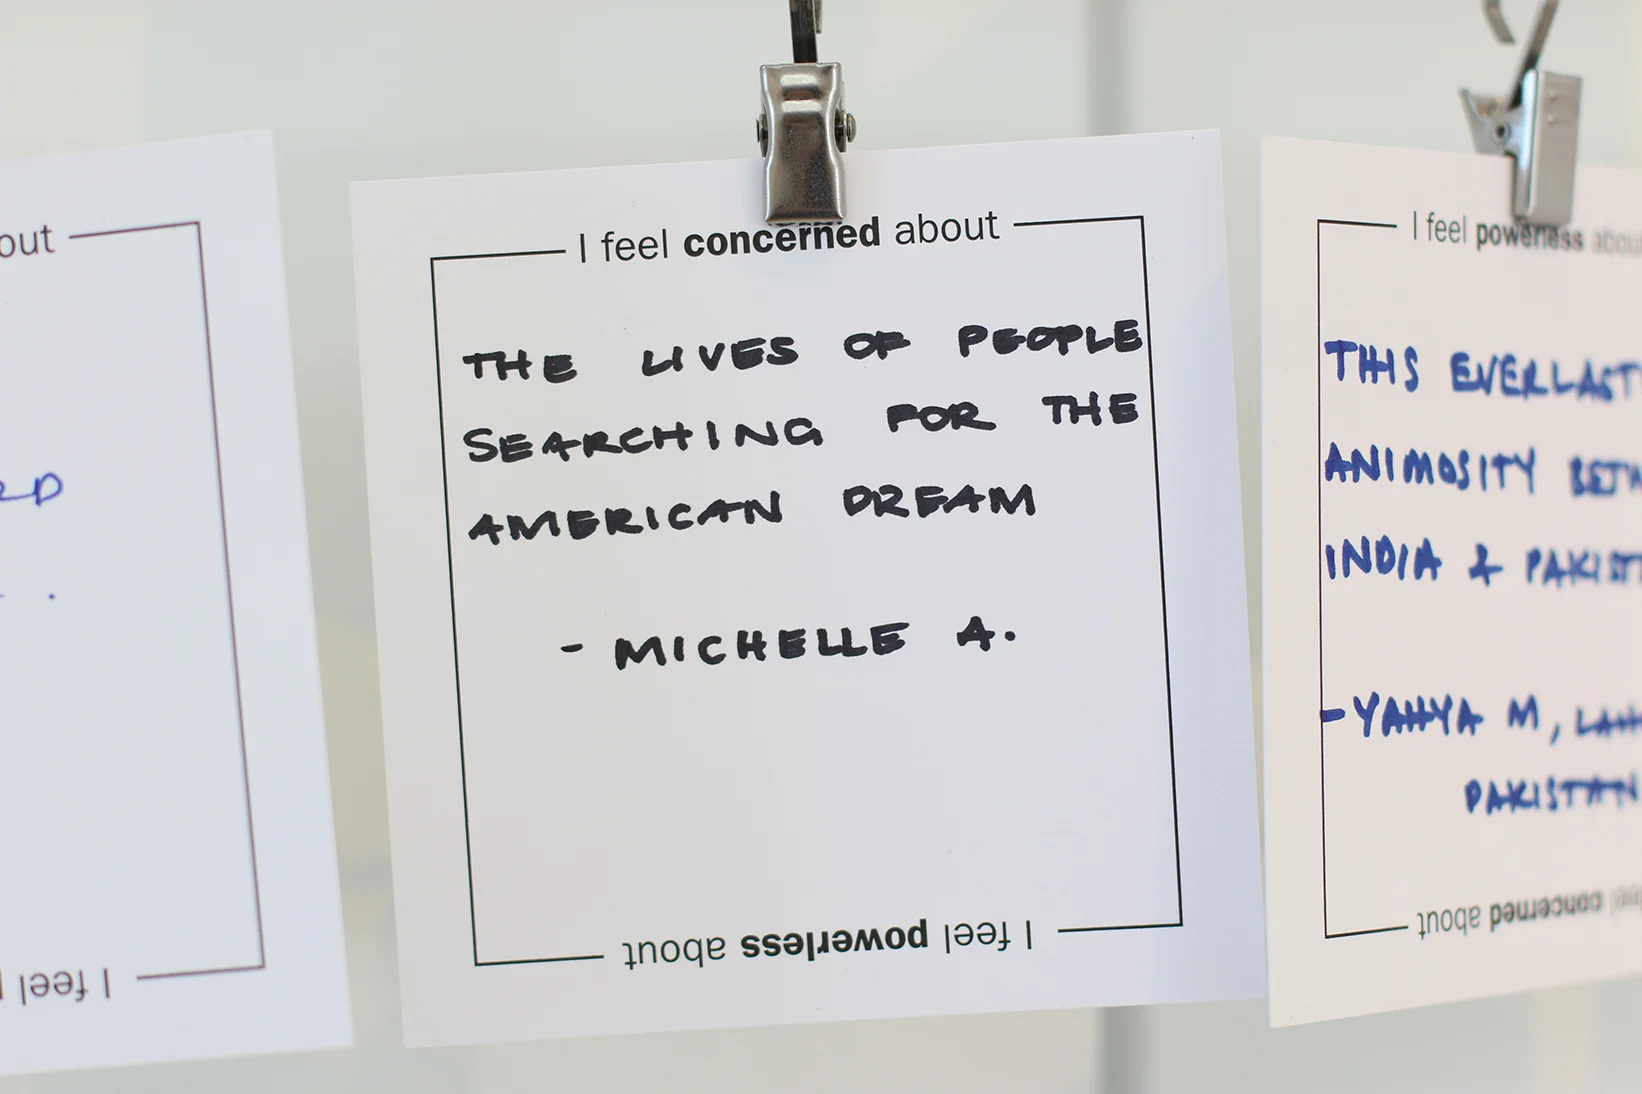 out
RD
. .
I feel
I feel concerned about
THE LIVES OF PEOPLE
SEARCHING FOR THE
AMERICAN DREAM
- MICHELLE A.
I feel powerless about
I feel powerless about
THIS EVERLAST
ANIMOSITY BETW
INDIA & PAKIST
- YAHYA M, LAH
PAKISTAN
feel concerned about